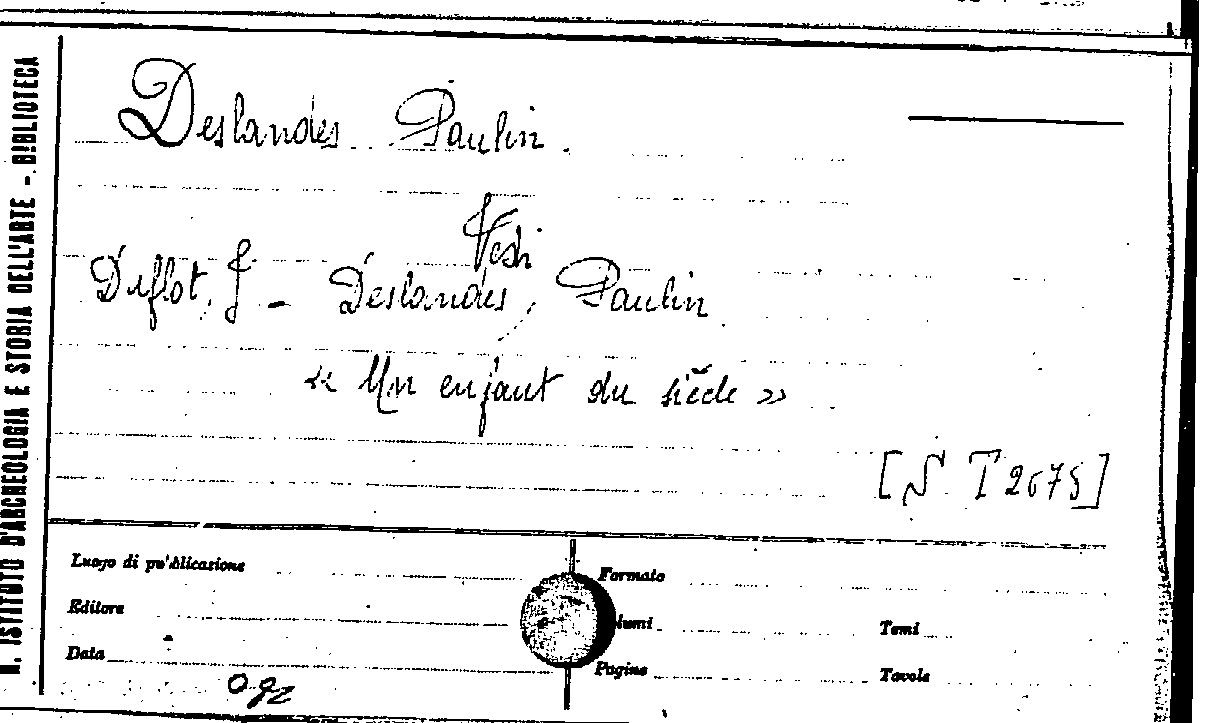 R. ISTITUTO D'ARCHEOLOGIA E STORIA DELL'ARTE - BIBLIOTECA
Deslandes Paulin.
Vedi
Duflot, J - Deslandes, Paulin
« Un enfant du siècle »
[S T 267S]
Luogo di pubblicazione
Formato
Editore
Volumi
Tomi
Data
Pagine
Tavole